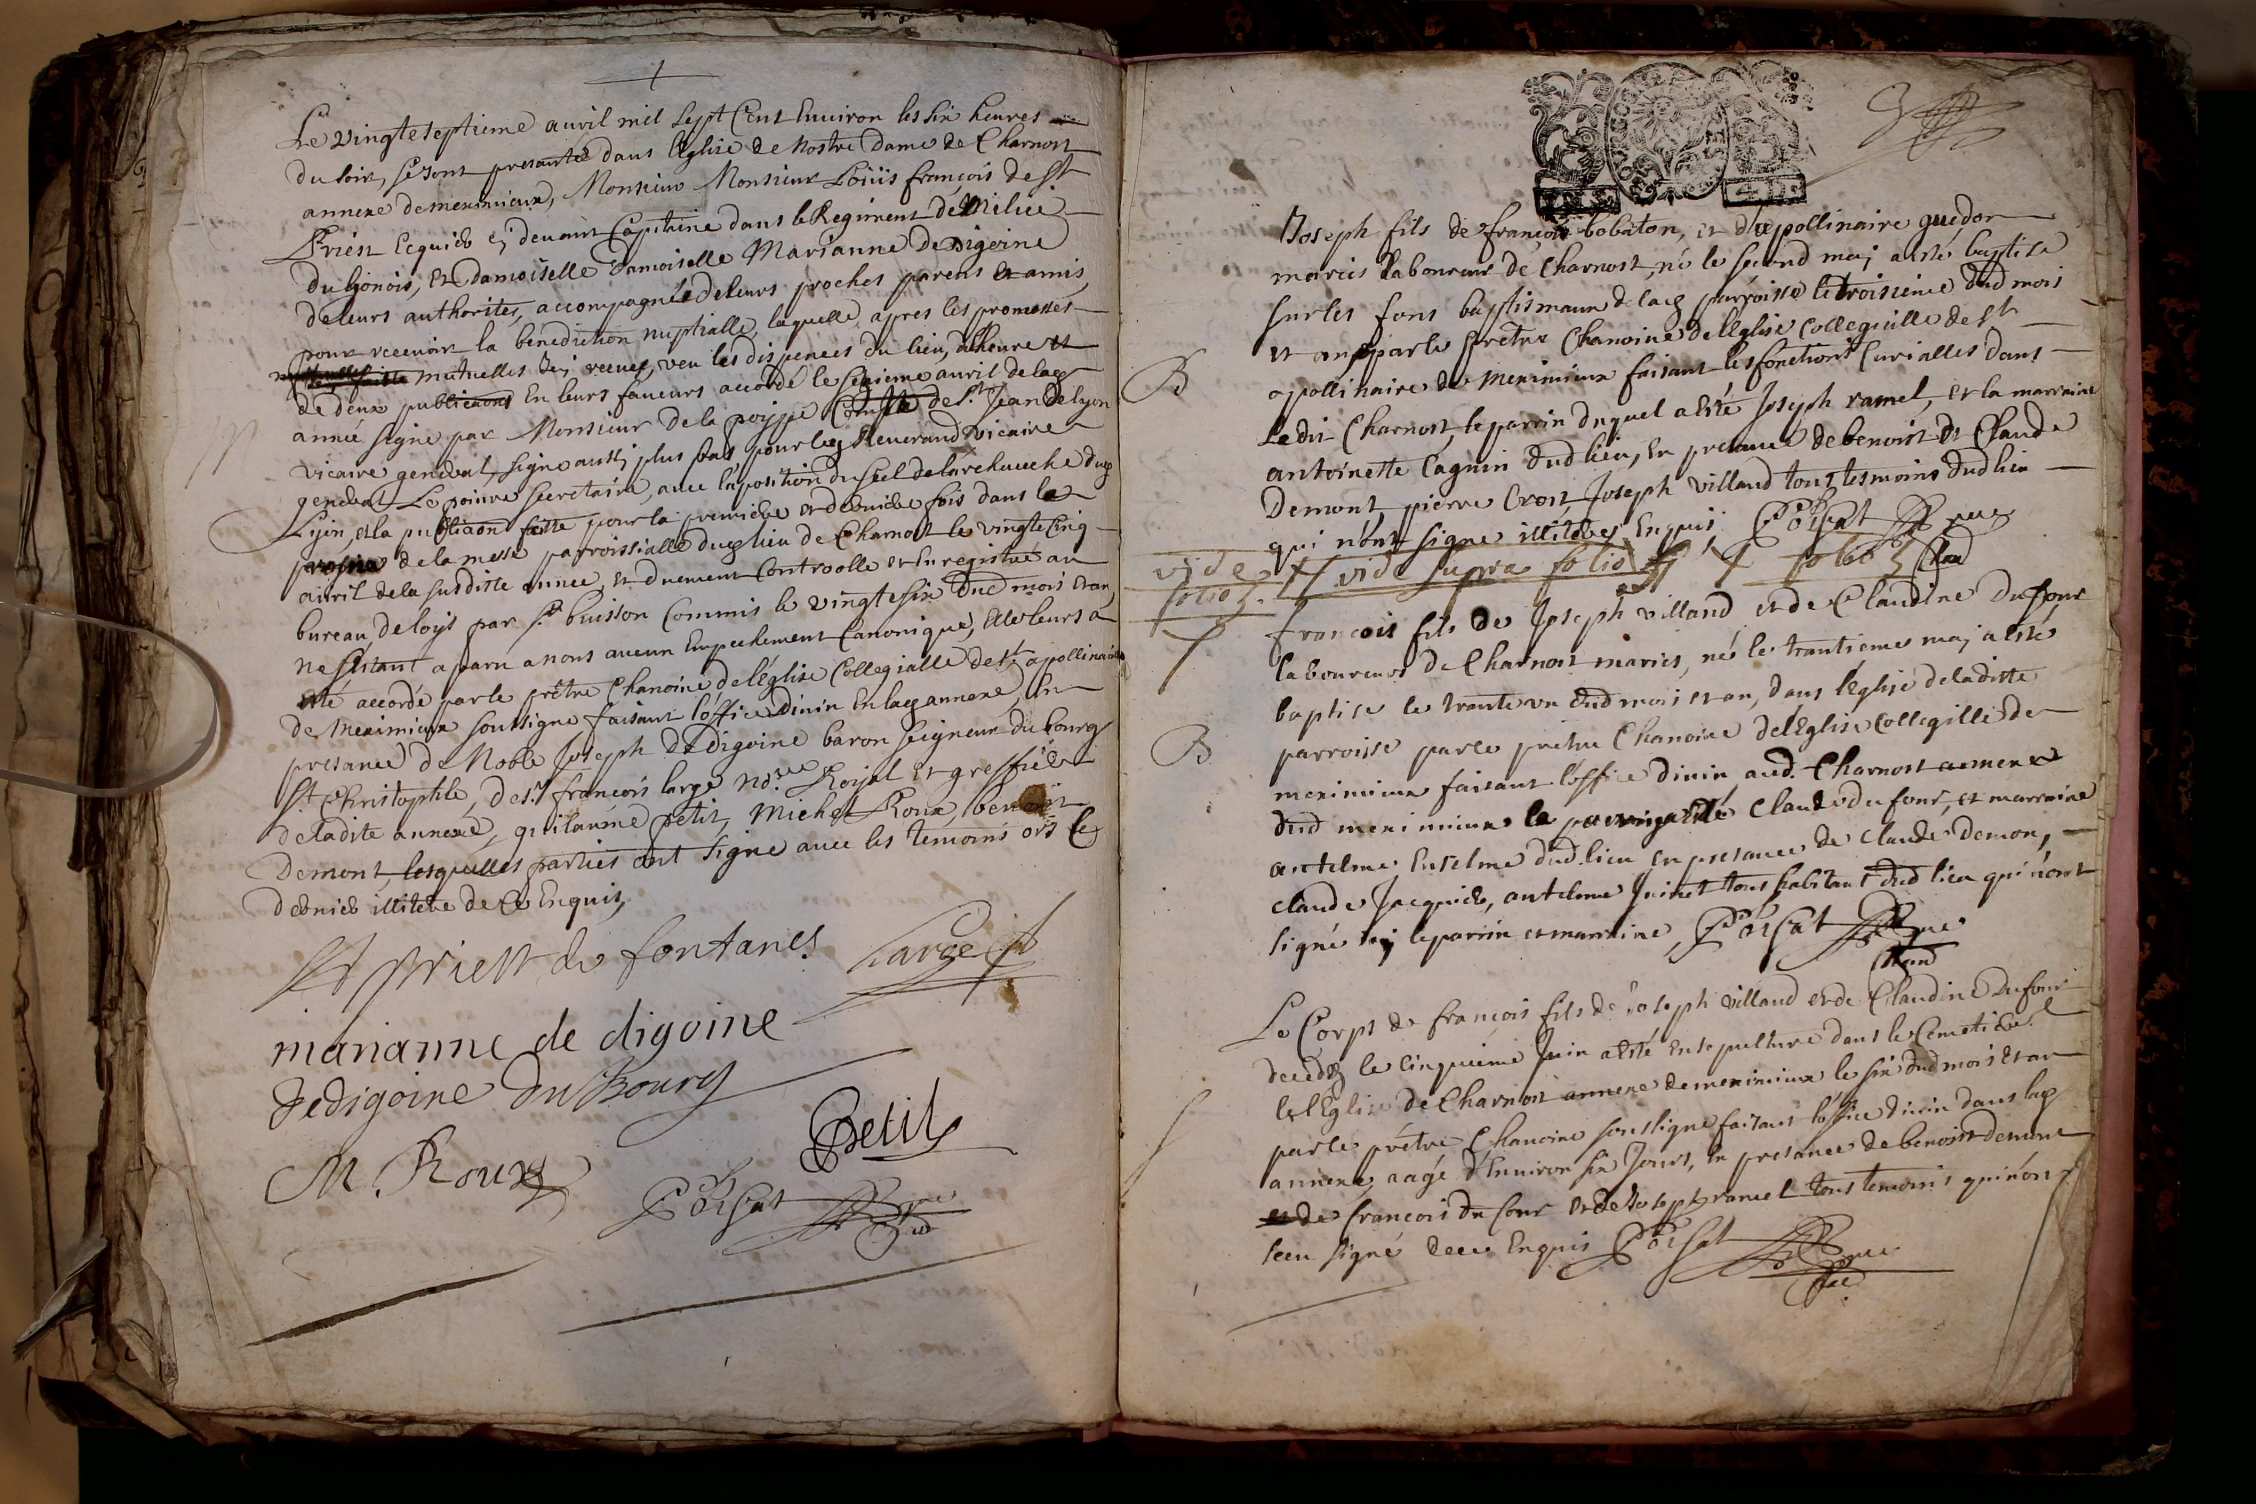 Le vingteseptieme auvil mil sept Cent Environ les six heures
du soir, se sont presantés dans l'Eglise de Nostre Dame de Charnost
annexe de meximieux, Monsieur Monsieur Loüis françois de St
Priest Ecquier cj devant Capitaine dans le Regiment de Milice
du lionois, Et damoiselle damoiselle Marianne de Digoine
de leurs authorités, accompagnés de leurs proches parens et amis
pour recevoir la benediction nuptialle, laquelle apres les promesses
mutuelles d'ej receues, veu les dispences du lieu, d'heure et
de deux publicaons En leurs faveurs accordé le seizieme auril de lad
année signe par Monsieur de la poijpe Comte de St Jean de lyon
vicaire general, signe aussj plus bas pour led Reverand vicaire
general Le poivre secretaire, avec l'aposition du scel de larcheveche dud
Lyon, et la publicaon faitte pour la premiere et derniere fois dans le
prosne de la messe parroissialle dud lieu de Charnost le vingtecinq
auril de la susditte annee, et duement Controolle et Enregistre au
bureau de loijs par sr buisson Commis le vingtesix dud mois et an,
ne s'estant aparu a nous aucun Empechement Canonique, Elle leurs a
esté accordé par le prêtre Chanoine de l'église Collegialle de St apollinaire
de Meximieux soussigne faisant l'office divin En lad annexe, En
presance de Noble Joseph de Digoine baron seigneur du bourg
St Christophle, de sr françois large no.re Roijal et greffier
de ladite annexe, guilaume petit, Michel Roux, benoist
Demont, lesquelles parties ont signe avec les temoins ors le
dernier illitere de ce Enquis,
St priest de fontanes
Large
marianne de digoine
Jedigoine du Bourg
Petit
M. Roux
Poisat
Joseph fils de françois bobaton, et d'appollinaire guedon
maries laboureurs de Charnost, né le second maj a esté baptise
sur les fons baptismaux de lad parroisse le troisieme dud mois
et an, par le prêtre Chanoine de l'Eglise Collegialle de St
apollinaire de Meximieux faisant les fonctions Curialles dans
ledit Charnost, le parrin duquel a esté Joseph ramel, et la marraine
antoinette Cagnin dud lieu, En presance de benoist et Claude
Demont, pierre Crost, Joseph Villaud tous tesmoins dud lieu
qui n'ont signe illiteres Enquis, Poisat
B
vide
folio
vide supra folio
folio
françois fils de Joseph villaud et de Claudine Dufour
laboureurs de Charnost maries, né le trantieme maj a esté
baptise le trante un dud mois et an, dans l'Eglise de laditte
parroisse par le prêtre Chanoine de l'Eglise Collegille de
B
meximieux faisant l'office divin aud. Charnost annexe
dud meximieux Claude dufour, et marraine
antelme Enselme dud lieu En presance de Claude demon,
claude Jacquier, antelme Juinet tous habitans dud lieu qui n'ont
signé nj le parrin et marraine, Poisat
Le Corps de françois fils de Joseph villaud et de Claudine Dufour
decedé le Cinquieme Juin a esté Ensepulture dans le Cemetiere
de l'Eglise de Charnost annexe de meximieux le six dud mois et an
par le prêtre Chanoine soussigne faisant l'office divin dans lad
annexe, aagé d'Environ six Jours, En presance de benoist demont
et de françois du four et de Joseph ramel tous temoins qui n'ont
sceu signé de ce Enquis Poisat